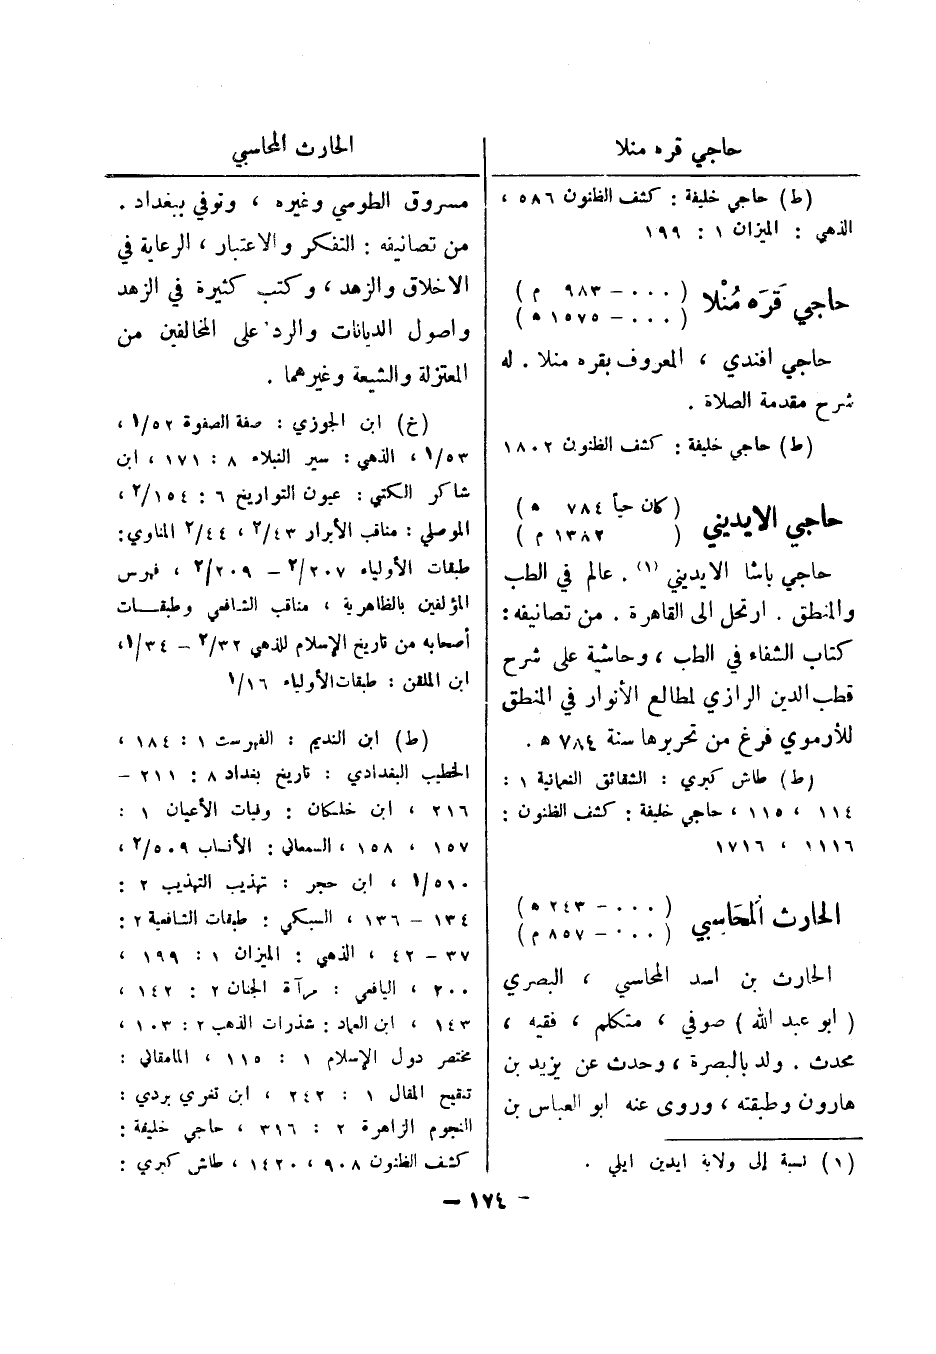 حاجي قره منلا
(ط) حاجي خليفة : كشف الظنون ٥٨٦ ،
الذهبي : الميزان ١ : ١٩٩
حاجي قَرَه مُنْلا
( ٠٠٠ - ٩٨٣ م )
( ٠٠٠ - ١٥٧٥ ه )
حاجي افندي ، المعروف بقره منلا . له
شرح مقدمة الصلاة .
(ط) حاجي خليفة : كشف الظنون ١٨٠٢
حاجي الايديني
( كان حياً ٧٨٤ ه )
( ١٣٨٢ م )
حاجي باشا الايديني (١) . عالم في الطب
والمنطق . ارتحل الى القاهرة . من تصانيفه :
كتاب الشفاء في الطب ، وحاشية على شرح
قطب الدين الرازي لمطالع الأنوار في المنطق
للأرموي فرغ من تحريرها سنة ٧٨٤ ه .
(ط) طاش كبري : الشقائق النعمانية ١ :
١١٤ ، ١١٥ ، حاجي خليفة : كشف الظنون :
١١١٦ ، ١٧١٦
الحارث المُحَاسِبي
( ٠٠٠ - ٢٤٣ ه )
( ٠٠٠ - ٨٥٧ م )
الحارث بن اسد المحاسبي ، البصري
( ابو عبد الله ) صوفي ، متكلم ، فقيه ،
محدث . ولد بالبصرة ، وحدث عن يزيد بن
هارون وطبقته ، وروى عنه ابو العباس بن
(١) نسبة إلى ولاية ايدين ايلي .
الحارث المحاسبي
مسروق الطوسي وغيره ، وتوفي ببغداد .
من تصانيفه : التفكر والاعتبار ، الرعاية في
الاخلاق والزهد ، وكتب كثيرة في الزهد
واصول الديانات والرد على المخالفين من
المعتزلة والشيعة وغيرهما .
(خ) ابن الجوزي : صفة الصفوة ١/٥٢ ،
١/٥٣ ، الذهبي : سير النبلاء ٨ : ١٧١ ، ابن
شاكر الكتبي : عيون التواريخ ٦ : ٢/١٥٤ ،
الموصلي : مناقب الأبرار ٢/٤٣ ، ٢/٤٤ المناوي :
طبقات الأولياء ٢/٢٠٧ - ٢/٢٠٩ ، فهرس
المؤلفين بالظاهرية ، مناقب الشافعي وطبقات
أصحابه من تاريخ الإسلام للذهبي ٢/٣٢ - ١/٣٤ ،
ابن الملقن : طبقات الأولياء ١/١٦
(ط) ابن النديم : الفهرست ١ : ١٨٤ ،
الخطيب البغدادي : تاريخ بغداد ٨ : ٢١١ -
٢١٦ ، ابن خلكان : وفيات الأعيان ١ :
١٥٧ ، ١٥٨ ، السمعاني : الأنساب ٢/٥٠٩ ،
١/٥١٠ ، ابن حجر : تهذيب التهذيب ٢ :
١٣٤ - ١٣٦ ، السبكي : طبقات الشافعية ٢ :
٣٧ - ٤٢ ، الذهبي : الميزان ١ : ١٩٩ ،
٢٠٠ ، اليافعي : مرآة الجنان ٢ : ١٤٢ ،
١٤٣ ، ابن العماد : شذرات الذهب ٢ : ١٠٣ ،
مختصر دول الإسلام ١ : ١١٥ ، المامقاني :
تنقيح المقال ١ : ٢٤٢ ، ابن تغري بردي :
النجوم الزاهرة ٢ : ٣١٦ ، حاجي خليفة :
كشف الظنون ٩٠٨ ، ١٤٢٠ ، طاش كبري :
- ١٧٤ -